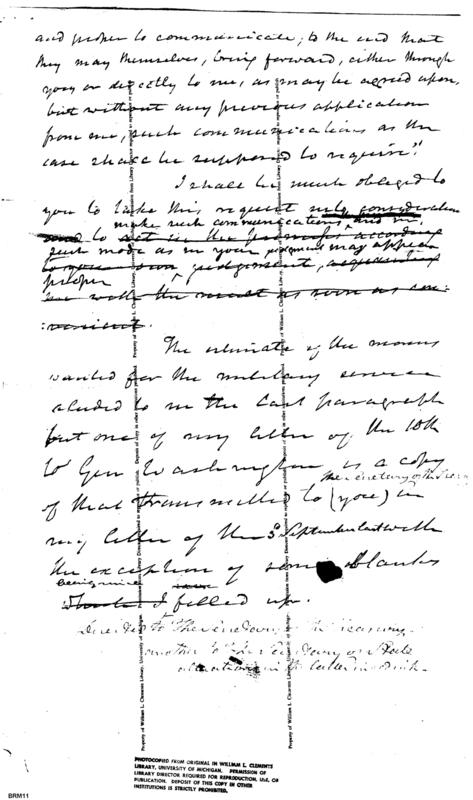 and proper to communicate; to the end that
they may themselves, bring forward, either through
you or directly to me, as may be agreed upon,
but without any previous application
from me, such communications as the
case shall be supposed to require."
I shall be much obliged to
you to take this request into consideration
make such communications, and in
and to act in the premises according
such mode as in your judgment may appear
proper
me with the result as soon as con-
venient.
The estimate of the monies
wanted for the military service
aluded to in the last paragraph
but one of my letter of the 10th
to Gen Washington is a copy
the Secretary of the Treasury
of that transmitted to (you) in
my letter of the 3 September last with
the exception of some blanks
being since
I filled up.
Directed to the Secretary of the Treasury
another to the Secretary of State
alterations in the latter in
Property of William L. Clements Library, University of Michigan.
PHOTOCOPIED FROM ORIGINAL IN WILLIAM L. CLEMENTS
LIBRARY, UNIVERSITY OF MICHIGAN. PERMISSION OF
LIBRARY DIRECTOR REQUIRED FOR REPRODUCTION, USE, OR
PUBLICATION. DEPOSIT OF THIS COPY IN OTHER
INSTITUTIONS IS STRICTLY PROHIBITED.
BRM11